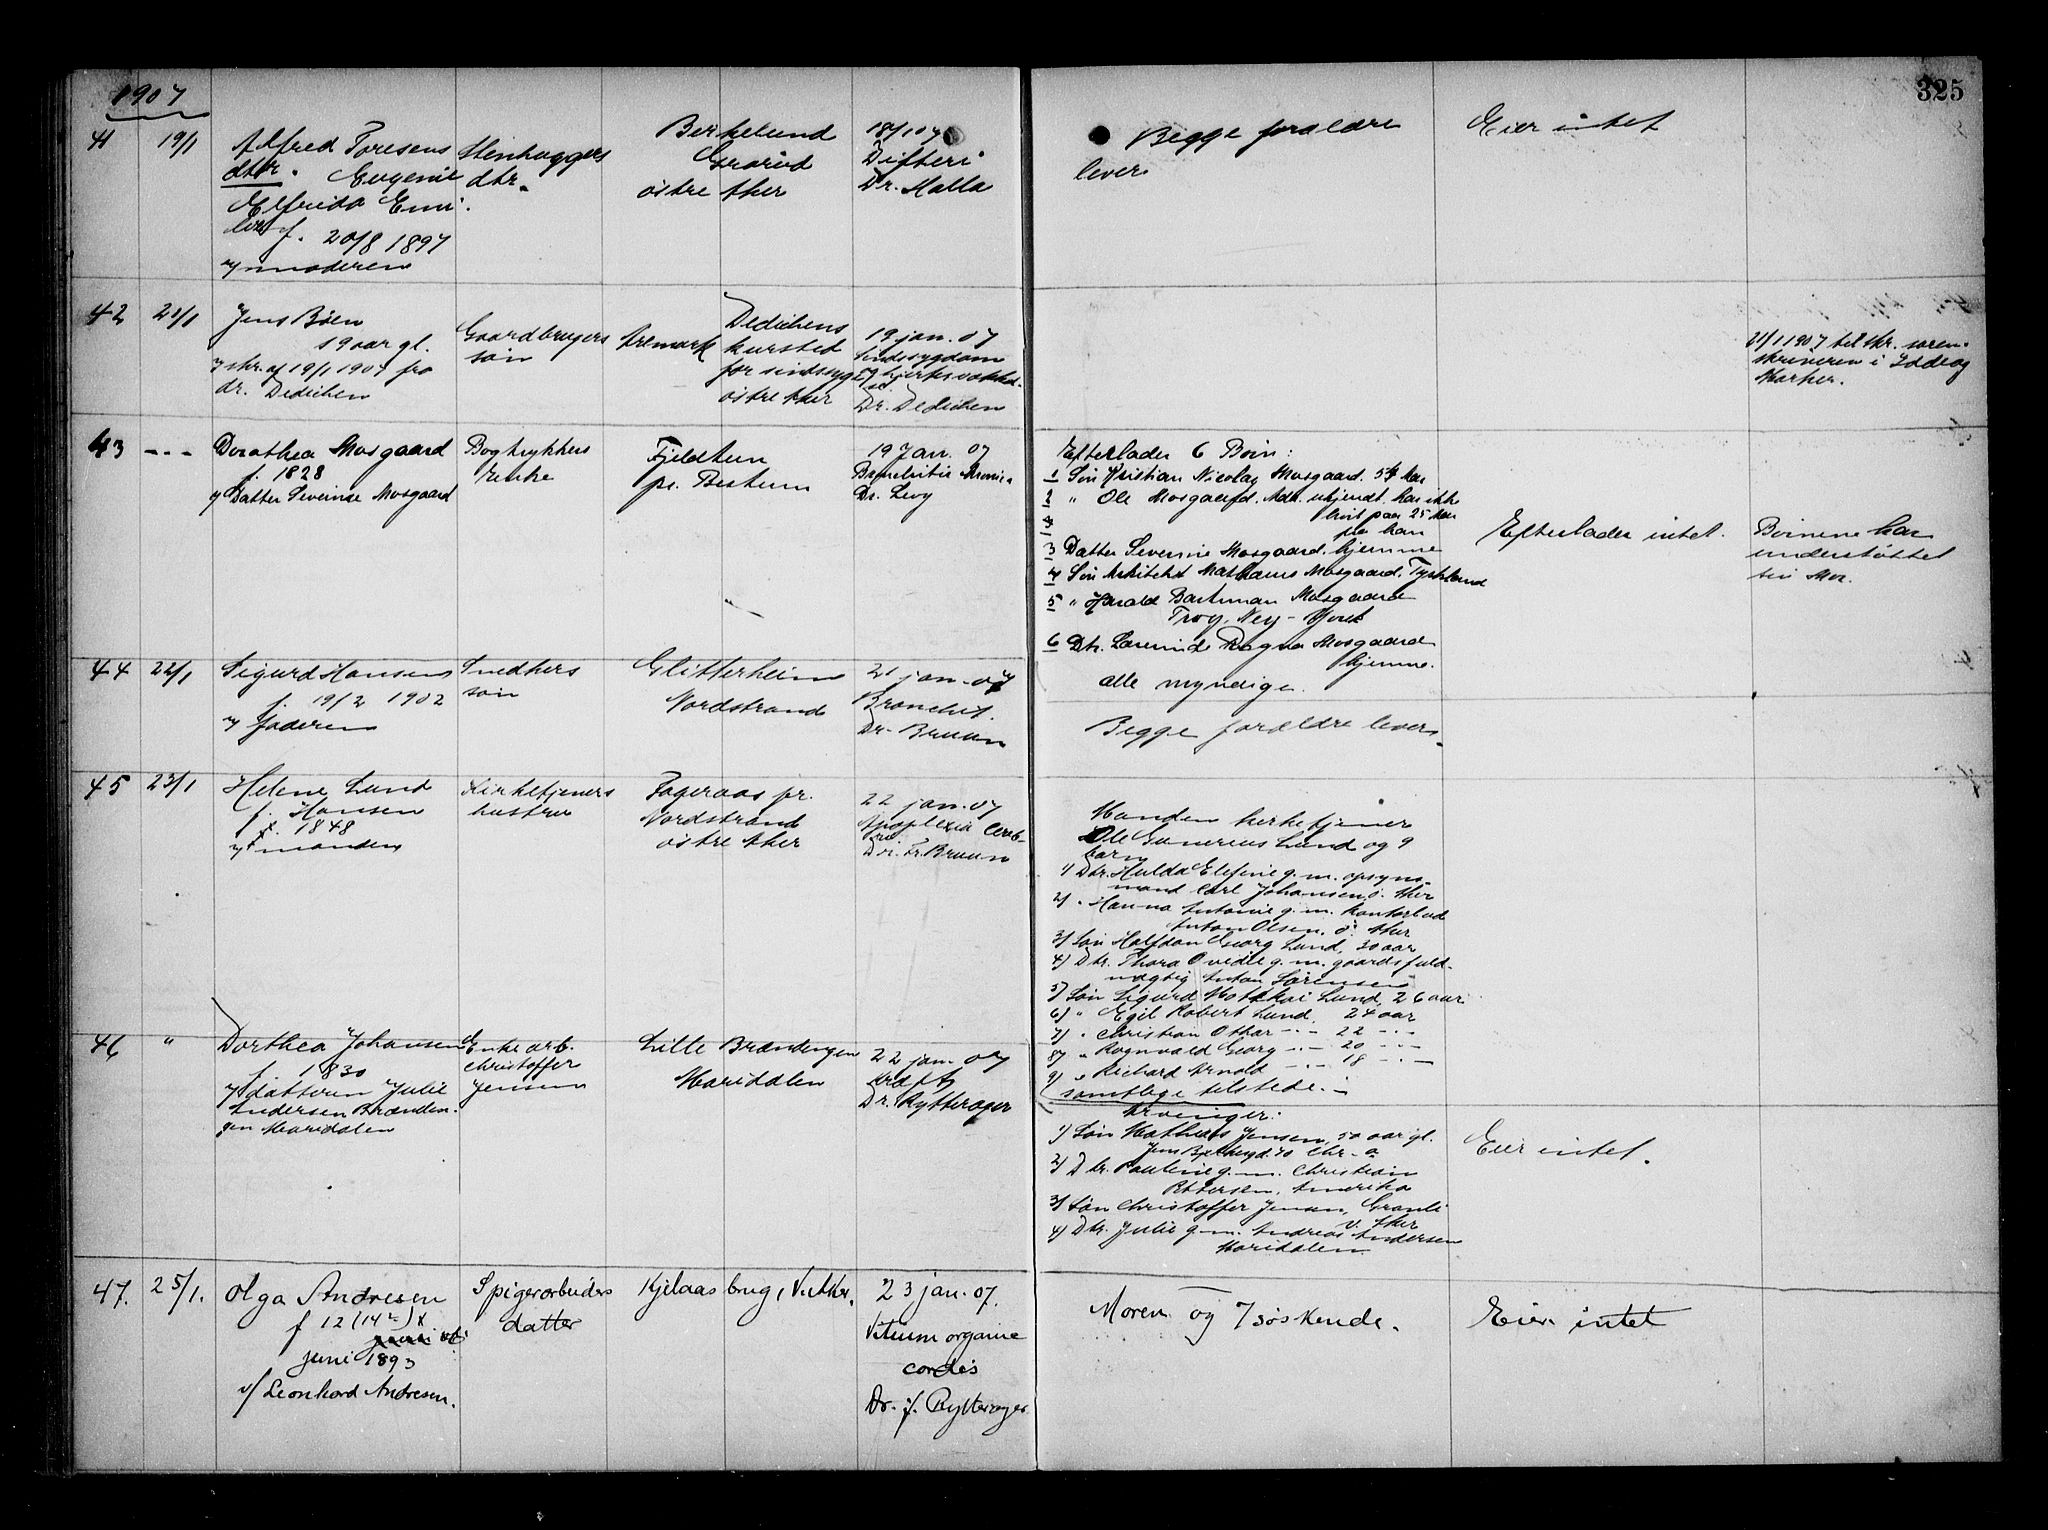 1907
325
41 19/1
Alfred Toresens
dtr. Eugenie
Elfrida Emi-
lie f. 20/8 1897
v/ moderen
Stenhuggers
dtr.
Birkelund
Grorud
östre Aker
18/1 07
Difteri
Dr. Malla
Begge forældre
lever
Eier intet
42 21/1
Jens Böen
19 aar gl.
v/ skr. af 19/1 1907 fra
dr. Dedichen
Gaardbrugers
sön
Aremark
Dedichens
kursted
for sindssyge
östre Aker
19 jan. 07
Sindssygdom
og hjertesvækkel-
se.
Dr. Dedichen
21/1 1907 til skr. soren-
skriveren i Idd og
Marker.
43 - - -
Dorothea Mosgaard
f. 1828
v/ Datter Severine Mosgaard
Bogtrykkers
Enke
Fjeldtun
pr. Bestum
19 Jan. 07
Dr. Levy
Efterlader 6 Börn:
1 Sön Kristian Nicolay Mosgaard. 54 Aar
2 " Ole Mosgaard. Adr. ukjendt. har ikke
hört paa 25 Aar
fra ham
3 Datter Severine Mosgaard. hjemme
4 Sön Arkitekt Mathæus Mosgaard. Tyskland
5 " Harald Bachman Mosgaard
Troy, Ney-York
6 Dtr. Ragna Mosgaard
hjemme.
alle myndige.
Efterlader intet.
Börnene har
understöttet
sin Mor.
44 22/1
Sigurd Hansen
f. 19/2 1902
v/ faderen
Snedkers
sön
Glitterheim
Nordstrand
21 jan. 07
Bronchit.
Dr. Bruun
Begge forældre lever.
45 23/1
Helene Lund
f. Hansen
f. 1848
v/ manden
Kirketjeners
hustru
Fageraas pr.
Nordstrand
östre Aker
22 jan. 07
Apoplexia Cereb-
ri.
Dr. Fr. Bruun
Manden kirketjener
Ole Gunerius Lund og 9
barn
1) Dtr. Hulda Elefine g. m. opsyns-
mand Carl Johansen ö. Aker
2) " Hanna Antonie g. m. kontorbud
Anton Olsen, ö. Aker
3) Sön Halfdan Georg Lund, 30 aar
4) Dtr. Thora Ovedie g. m. gaardsfuld-
mægtig Anton Sörensen
5) Sön Sigurd Lund, 26 aar
6) " Egil Robert Lund, 24 aar
7) " Christian Othar -"- 22 -"-
8) " Rognvald Georg -"- 20 -"-
9) " Richard Arnold -"- 18 -"-
samtlige tilstede. -
46 "
Dorthea Johansen
f. 1830
v/ datteren Julie
Andersen Brænden-
gen Maridalen
Enke arb.
Christoffer
Jensen
Lille Brændengen
Maridalen
22 jan 07
Dr. Rytterager
Arvinger:
1) Sön Mathias Jensen, 50 aar gl.
Jens Bjelkesgd. 40 Chr-a
2) Dtr. Pauline g. m. Christian
Pettersen, Amerika
3) Sön Christoffer Jensen, Granli
V. Aker
4) Dtr. Julie g. m. Andreas Andersen
Maridalen
Eier intet.
47. 25/1.
Olga Andresen
f 12 (14)
juni 1893
v/ Leonhard Andresen.
Spigerarbeiders
datter
Kjelsaas brug, V. Aker.
23 jan. 07.
Vitium organic
cordis
Dr. J. Rytterager
Moren og 7 söskende.
Eier intet